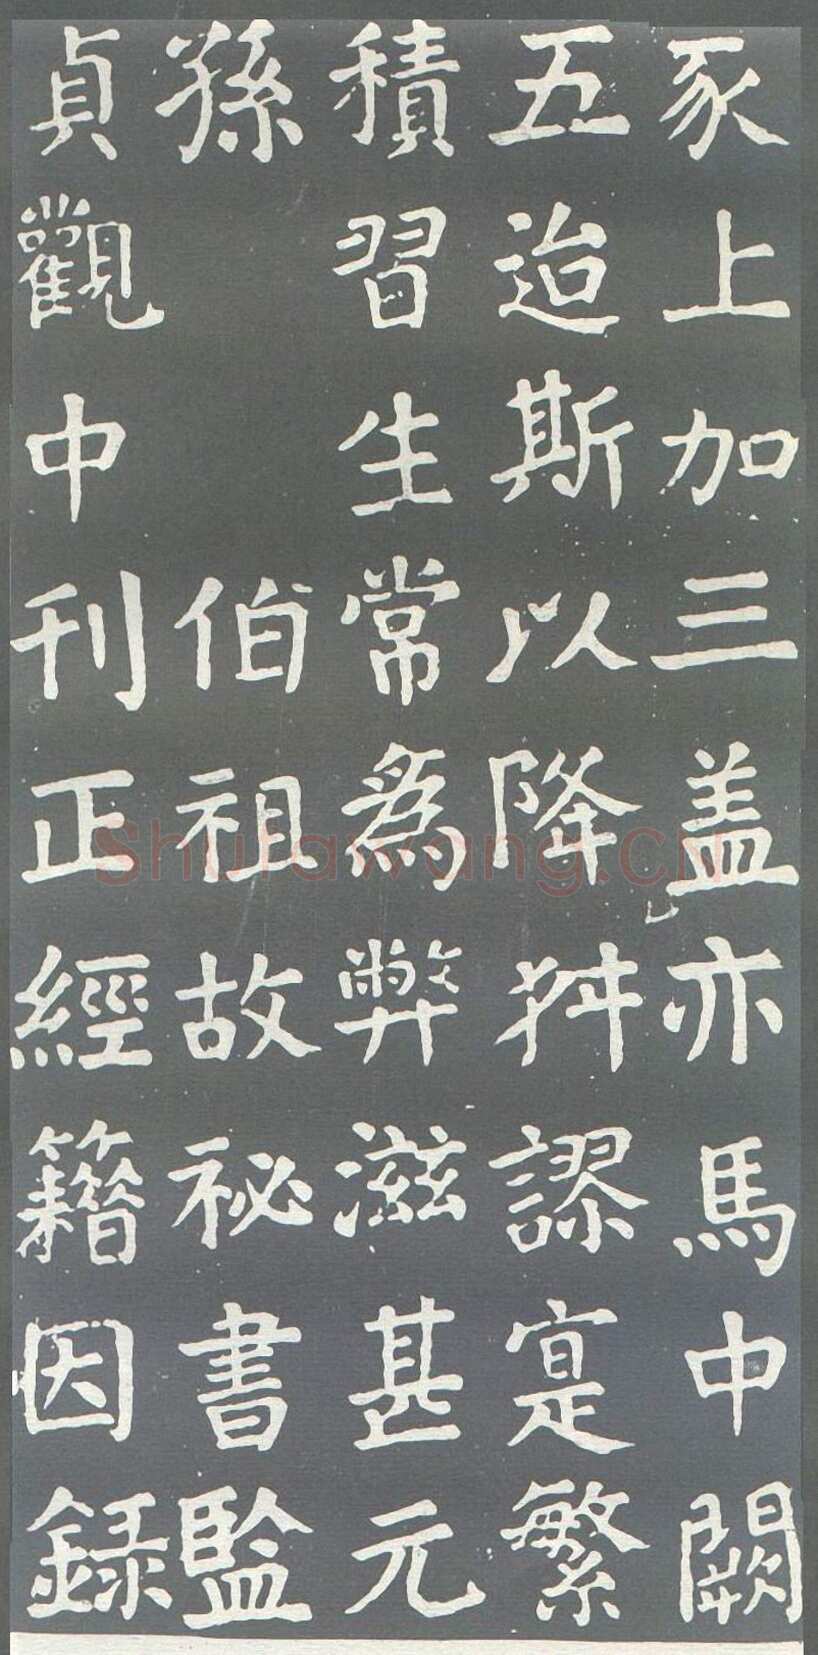 豕上加三盖亦馬中闕
五迨斯以降舛謬寔繁
積習生常為弊滋甚元
孫伯祖故祕書監
貞觀中刊正經籍因録
Shufawang.CN